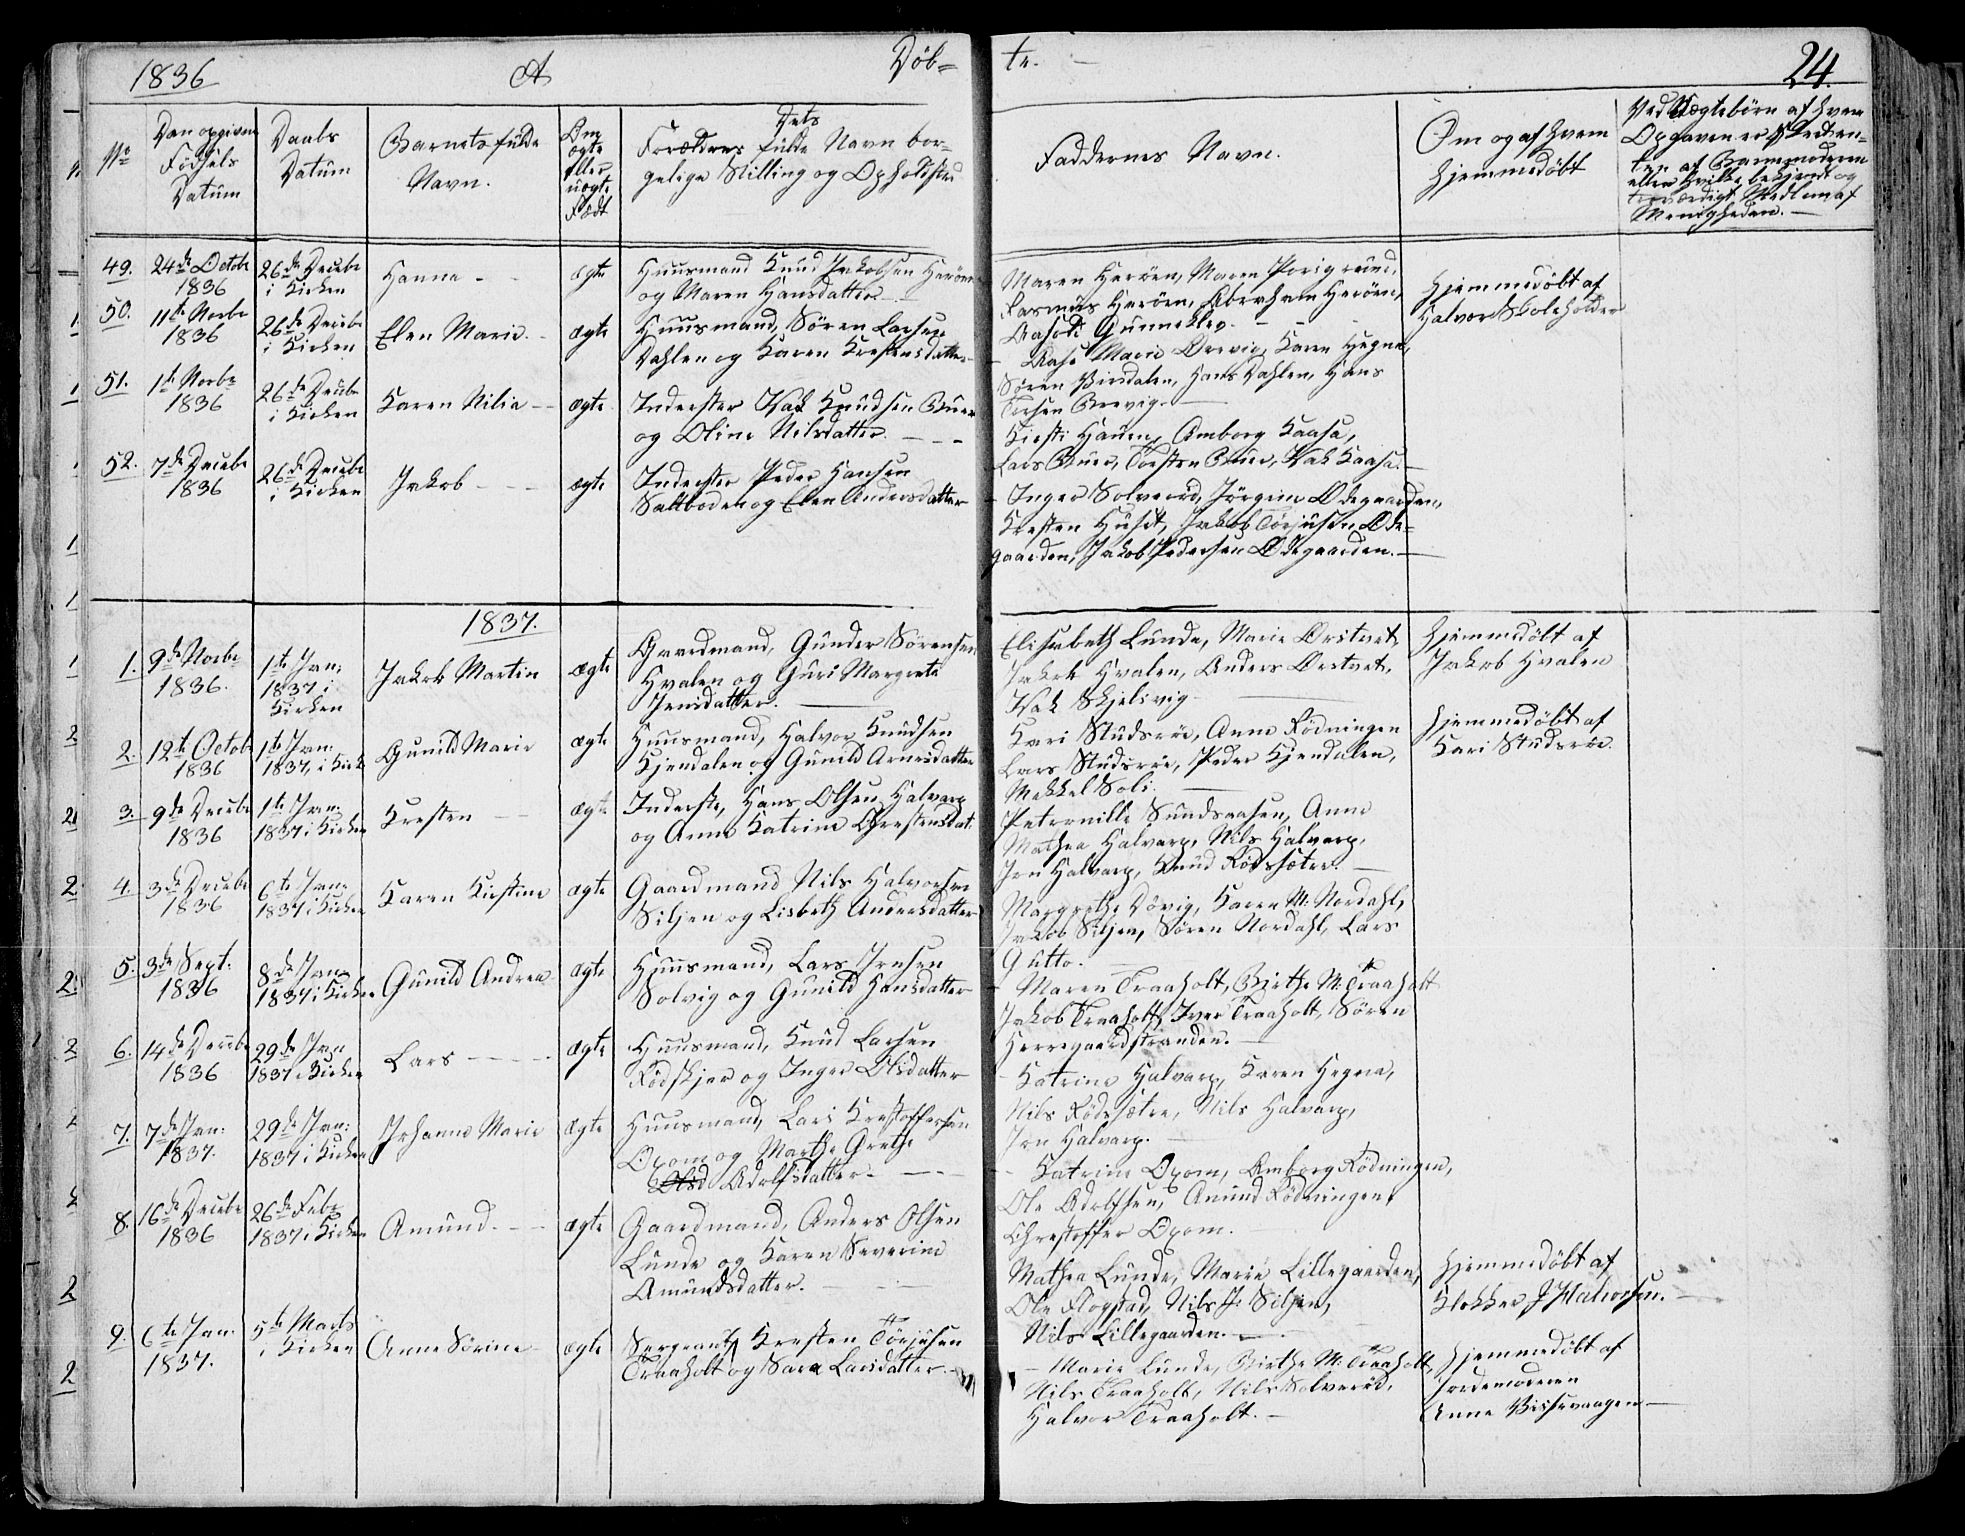 1836
A
Døb-
te.
24.
No
Den opgivne
Fødsels
Datum
Daabs
Datum
Barnets fulde
Navn.
Om
ægte
eller
uægte
Født
Dets
Forældres fulde Navn bor-
gelige Stilling og Opholdsted
Faddernes Navn.
Om og af hvem
hjemmedøbt
Ved Uægtebørn af hvem
Opgaven er skeet en-
ten af Barnemoderen
eller hvilke bekjendt og
troværdigt Medlem af
Menigheden.
49.
24de Octobr
1836
26de Decebr
i Kirken
Hanna
ægte
Huusmand Knud Jakobsen Herøen
og Maren Hansdatter
Maren Herøen, Maren Porsgrund,
Rasmus Herøen, Abraham Herøen,
Gunneklev.
Hjemmedøbt af
Halvor Skoleholder
50.
11te Novbr
1836
26de Decebr
i Kirken
Elen Marie
ægte
Huusmand, Søren Larsen
Dahlen og Karen Krestensdatter
Aase Marie Brevig, Karen Hegna,
Søren Bindalen, Hans Dahlen, Hans
Brevig.
51.
1te Novbr
1836
26de Decebr
i Kirken
Karen Nilia
ægte
Inderster Isak Knudsen Buer
og Oline Nilsdatter.
Kirsti Hauen, Amborg Kaasa,
Lars Buer, Torsten Buer, Isak Kaasa.
52.
7de Decebr
1836
26de Decebr
i Kirken
Jakob
ægte
Inderster Peder Hansen
Saltboden og Elen Andersdatter
Inger Solverød, Jørgine Ødegaarden,
Kresten Huset, Jakob Torjusen Øde-
gaarden, Jakob Pedersen Ødegaarden.
1837.
1.
9de Novbr
1836.
1te Jan:
1837 i
Kirken
Jakob Martin
ægte
Gaardmand, Gunder Sørensen
Hvalen og Guri Margrete
Jensdatter.
Elisabeth Lunde, Marie Ørstvet,
Jakob Hvalen, Anders Ørstvet,
Isak Skjelsvig
Hjemmedøbt af
Jakob Hvalen
2.
12te Octob
1836
1te Jan:
1837, i Kirk
Gunild Marie
ægte
Huusmand, Halvor Knudsen
Kjendalen og Gunild Arnesdatter
Kari Studsrøe, Anne Rødningen
Lars Studsrøe, Peder Kjendalen,
Mekkel Soli.
Hjemmedøbt af
Kari Studsrøe.
3.
9de Decebr
1836
1te Jan:
1837 i Kirken
Kresten
ægte
Inderste, Hans Olsen Halvarp
og Anne Katrine Chrestensdat.
Petronille Sundsaasen, Anne
Mathea Halvarp, Nils Halvarp,
Jon Halvarp, Knud Rødssæter.
4.
3de Decebr
1836
6te Jan:
1837 i Kirken
Karen Kirstine
ægte
Gaardmand Nils Halvorsen
Siljen og Lisbeth Andersdatter
Margrethe Døvig, Karen M: Nordahl,
Jakob Siljen, Søren Nordahl, Lars
Gutto.
5.
3de Sept:
1836
8de Jan:
1837 i Kirken
Gunild Andrea
ægte
Huusmand, Lars Jensen
Solvig og Gunild Hansdatter
Maren Traaholt, Birthe M: Traaholt
Jakob Traaholt, Iver Traaholt, Søren
Herregaardstranden.
6.
14de Decebr
1836
29de Jan
1837 i Kirken
Lars
ægte
Huusmand, Knud Larsen
Rødskjer og Inger Olsdatter
Katrine Halvarp, Karen Hegna,
Nils Rødssæter, Nils Halvarp,
Jon Halvarp.
7.
7de Jan:
1837.
29de Jan:
1837 i Kirken
Johanne Marie
ægte
Huusmand, Lars Kristoffersen
Oxom og Marthe Grethe
Olsd Adolfsdatter.
Katrine Oxom, Amborg Rødningen,
Ole Adolfsen, Amund Rødningen,
Chrestoffer Oxom.
8.
16de Decebr
1836
26de Febr
1837 i Kirken
Amund.
ægte
Gaardmand, Anders Olsen
Lunde og Karen Severine
Amundsdatter.
Mathea Lunde, Marie Lillegaarden,
Ole Flogstad, Nils Js: Siljen,
Nils Lillegaarden.
Hjemmedøbt af
Klokker J Halvorsen.
9.
6te Jan.
1837.
5te Marts
i Kirken
Anne Sørine
ægte
Sergeant Kresten Torjusen
Traaholt og Sara Larsdatter.
Marie Lunde, Birthe M: Traaholt,
Nils Traaholt, Nils Solverød,
Halvor Traaholt.
Hjemmedøbt af
Jordemoderen
Anne Vissevaagen